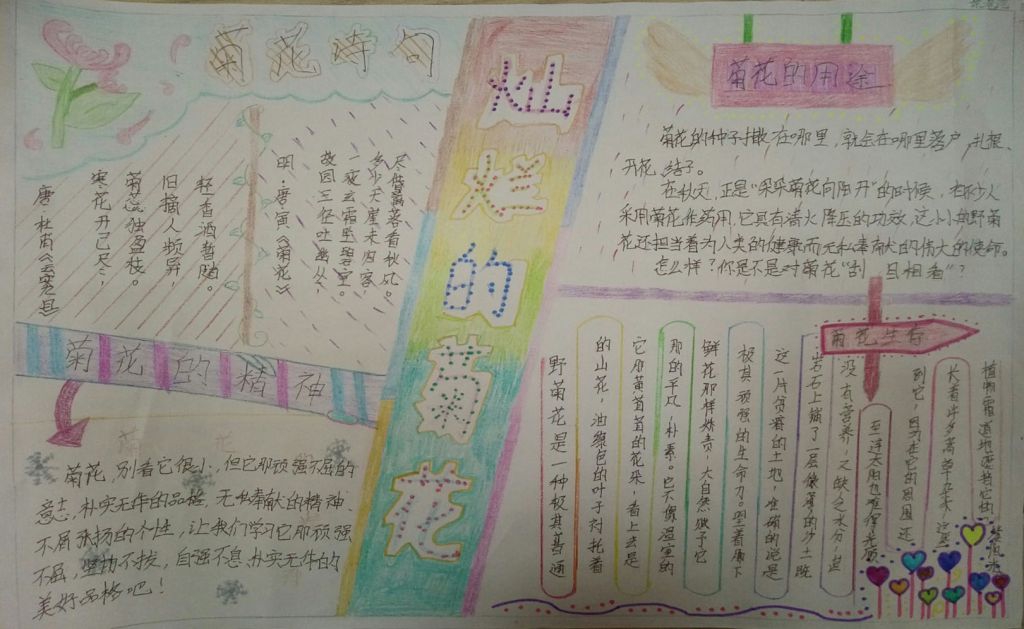 菊花诗句
尽借篱落看秋风。
多少天涯未归客,
一夜云霜坠碧空。
故园三径吐幽丛,
明·唐寅《菊花》
轻香酒暂随。
旧摘人频异,
菊蕊独盈枝。
寒花开已尽,
唐·杜甫《云安
灿烂的菊花
菊花的用途
菊花的种子撒在哪里,就会在哪里落户、扎根、
开花、结子。
在秋天,正是“朵朵菊花向阳开”的时候,
采用菊花作药用,它具有清火降压的功效,这小小的野菊
花还把当着为人类的健康而无私奉献的伟大的使命。
怎么样?你是不是对菊花“刮目相看”?
菊花的精神
菊花,别看它很小,但它那顽强不屈的
意志,朴实无华的品格,无私奉献的精神、
不屑张扬的个性,让我们学习它那顽强
不屈,坚韧不拔,自强不息、朴实无华的
美好品格吧!
菊花生存
野菊花是一种极其普通
的山花,油绿色的叶子衬托着
它那黄茸茸的花朵,看上去是
那的平凡、朴素。它不像温室的
鲜花那样娇贵,大自然赋予它
极其顽强的生命力。望着脚下
这一片贫瘠的土地,准确的说是
岩石上铺了一层很薄的沙土,既
没有营养,又缺乏水分,
至连太阳也难得光顾
到它,因为在它的周围还
长着许多高草杂木,这些
植物霸道地